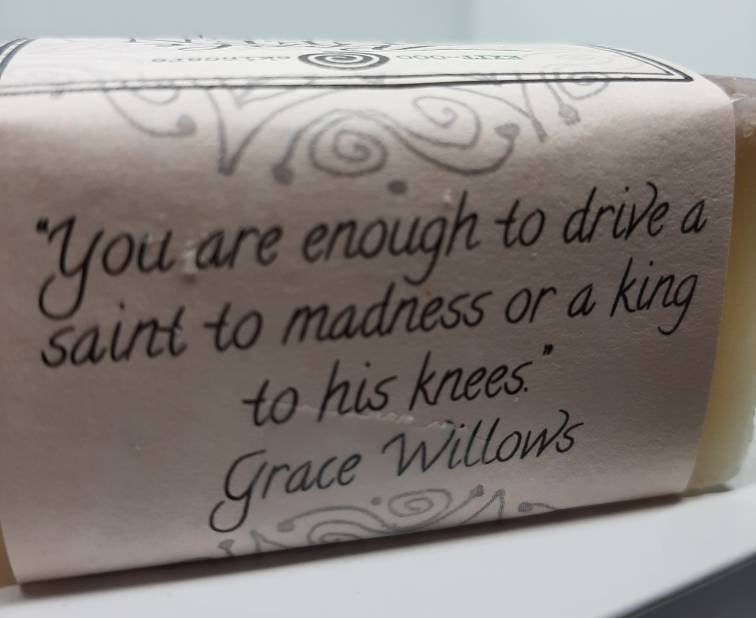 skincare
"You are enough to drive a
saint to madness or a king
to his knees."
Grace Willows